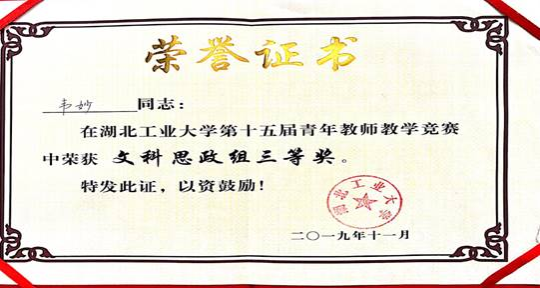 荣誉证书
韦妙同志：
在湖北工业大学第十五届青年教师教学竞赛
中荣获 文科思政组三等奖。
特发此证，以资鼓励！
湖北工业大学
二〇一九年十一月